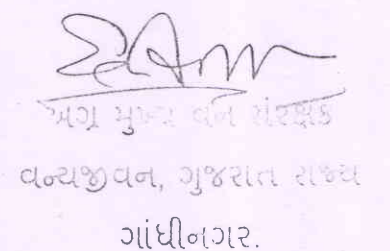 અગ્ર મુખ્ય વન સંરક્ષક
વન્યજીવન, ગુજરાત રાજ્ય
ગાંધીનગર.